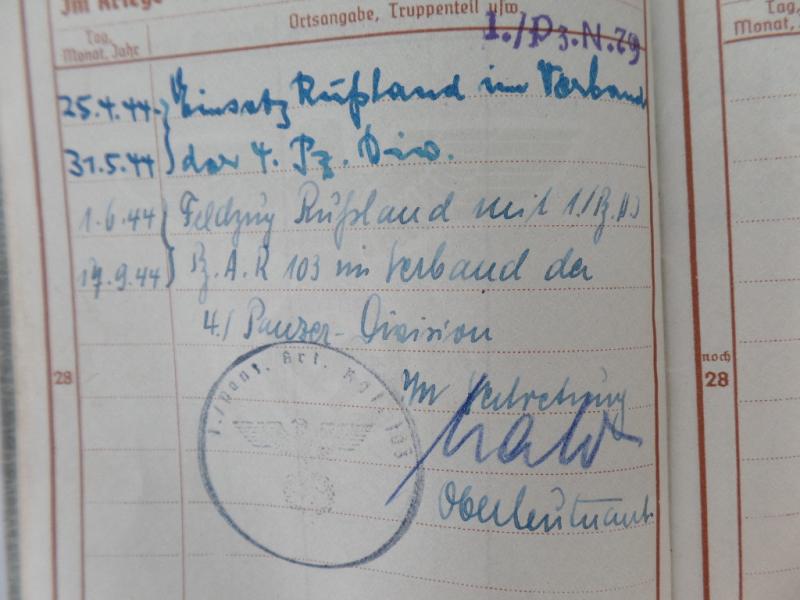 Im Kriege
Ortsangabe, Truppenteil usw.
Tag,
Monat, Jahr
1./Pz.N.79
25.4.44- Einsatz Rußland im Verband
31.5.44 der 4. Pz. Div.
1.6.44 Feldzug Rußland mit 1./
17.9.44 Pz.A.R 103 im Verband der
4./ Panzer-Division
28
Im Vertretung
Oberleutnant
1./Panz. Art. Rgt. 103
noch
28
Tag,
Monat,